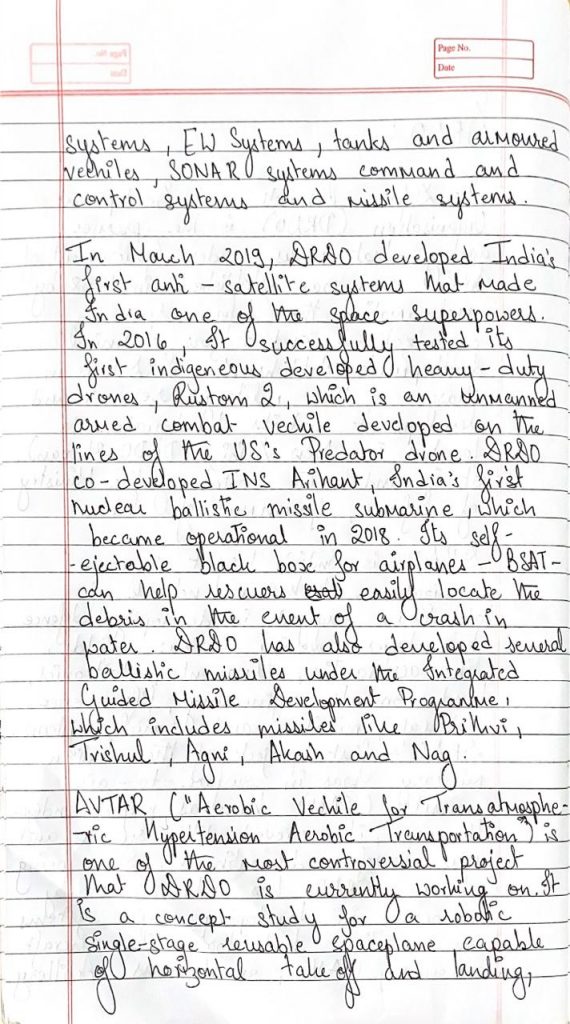 Page No.
Date
systems, EW Systems, tanks and armoured
vechiles, SONAR systems command and
control systems and missile systems.
In March 2019, DRDO developed India's
first anti-satellite systems that made
India one of the space superpowers.
In 2016, It successfully tested its
first indigeneous developed heavy-duty
drones, Rustom 2, which is an unmanned
armed combat vechile developed on the
lines of the US's Predator drone. DRDO
co-developed INS Arihant, India's first
nuclear ballistic missile submarine, which
became operational in 2018. Its self-
-ejectable black box for airplanes - BSAT-
can help rescuers easily locate the
debris in the event of a crash in
water. DRDO has also developed several
ballistic missiles under the Integrated
Guided Missile Development Programme,
which includes missiles like Prithvi,
Trishul, Agni, Akash and Nag.
AVTAR ("Aerobic Vechile for Transatmosphe-
-ric Hypertension Aerobic Transportation") is
one of the most controversial project
that DRDO is currently working on. It
is a concept study for a robotic
single-stage reusable spaceplane capable
of horizontal take off and landing,